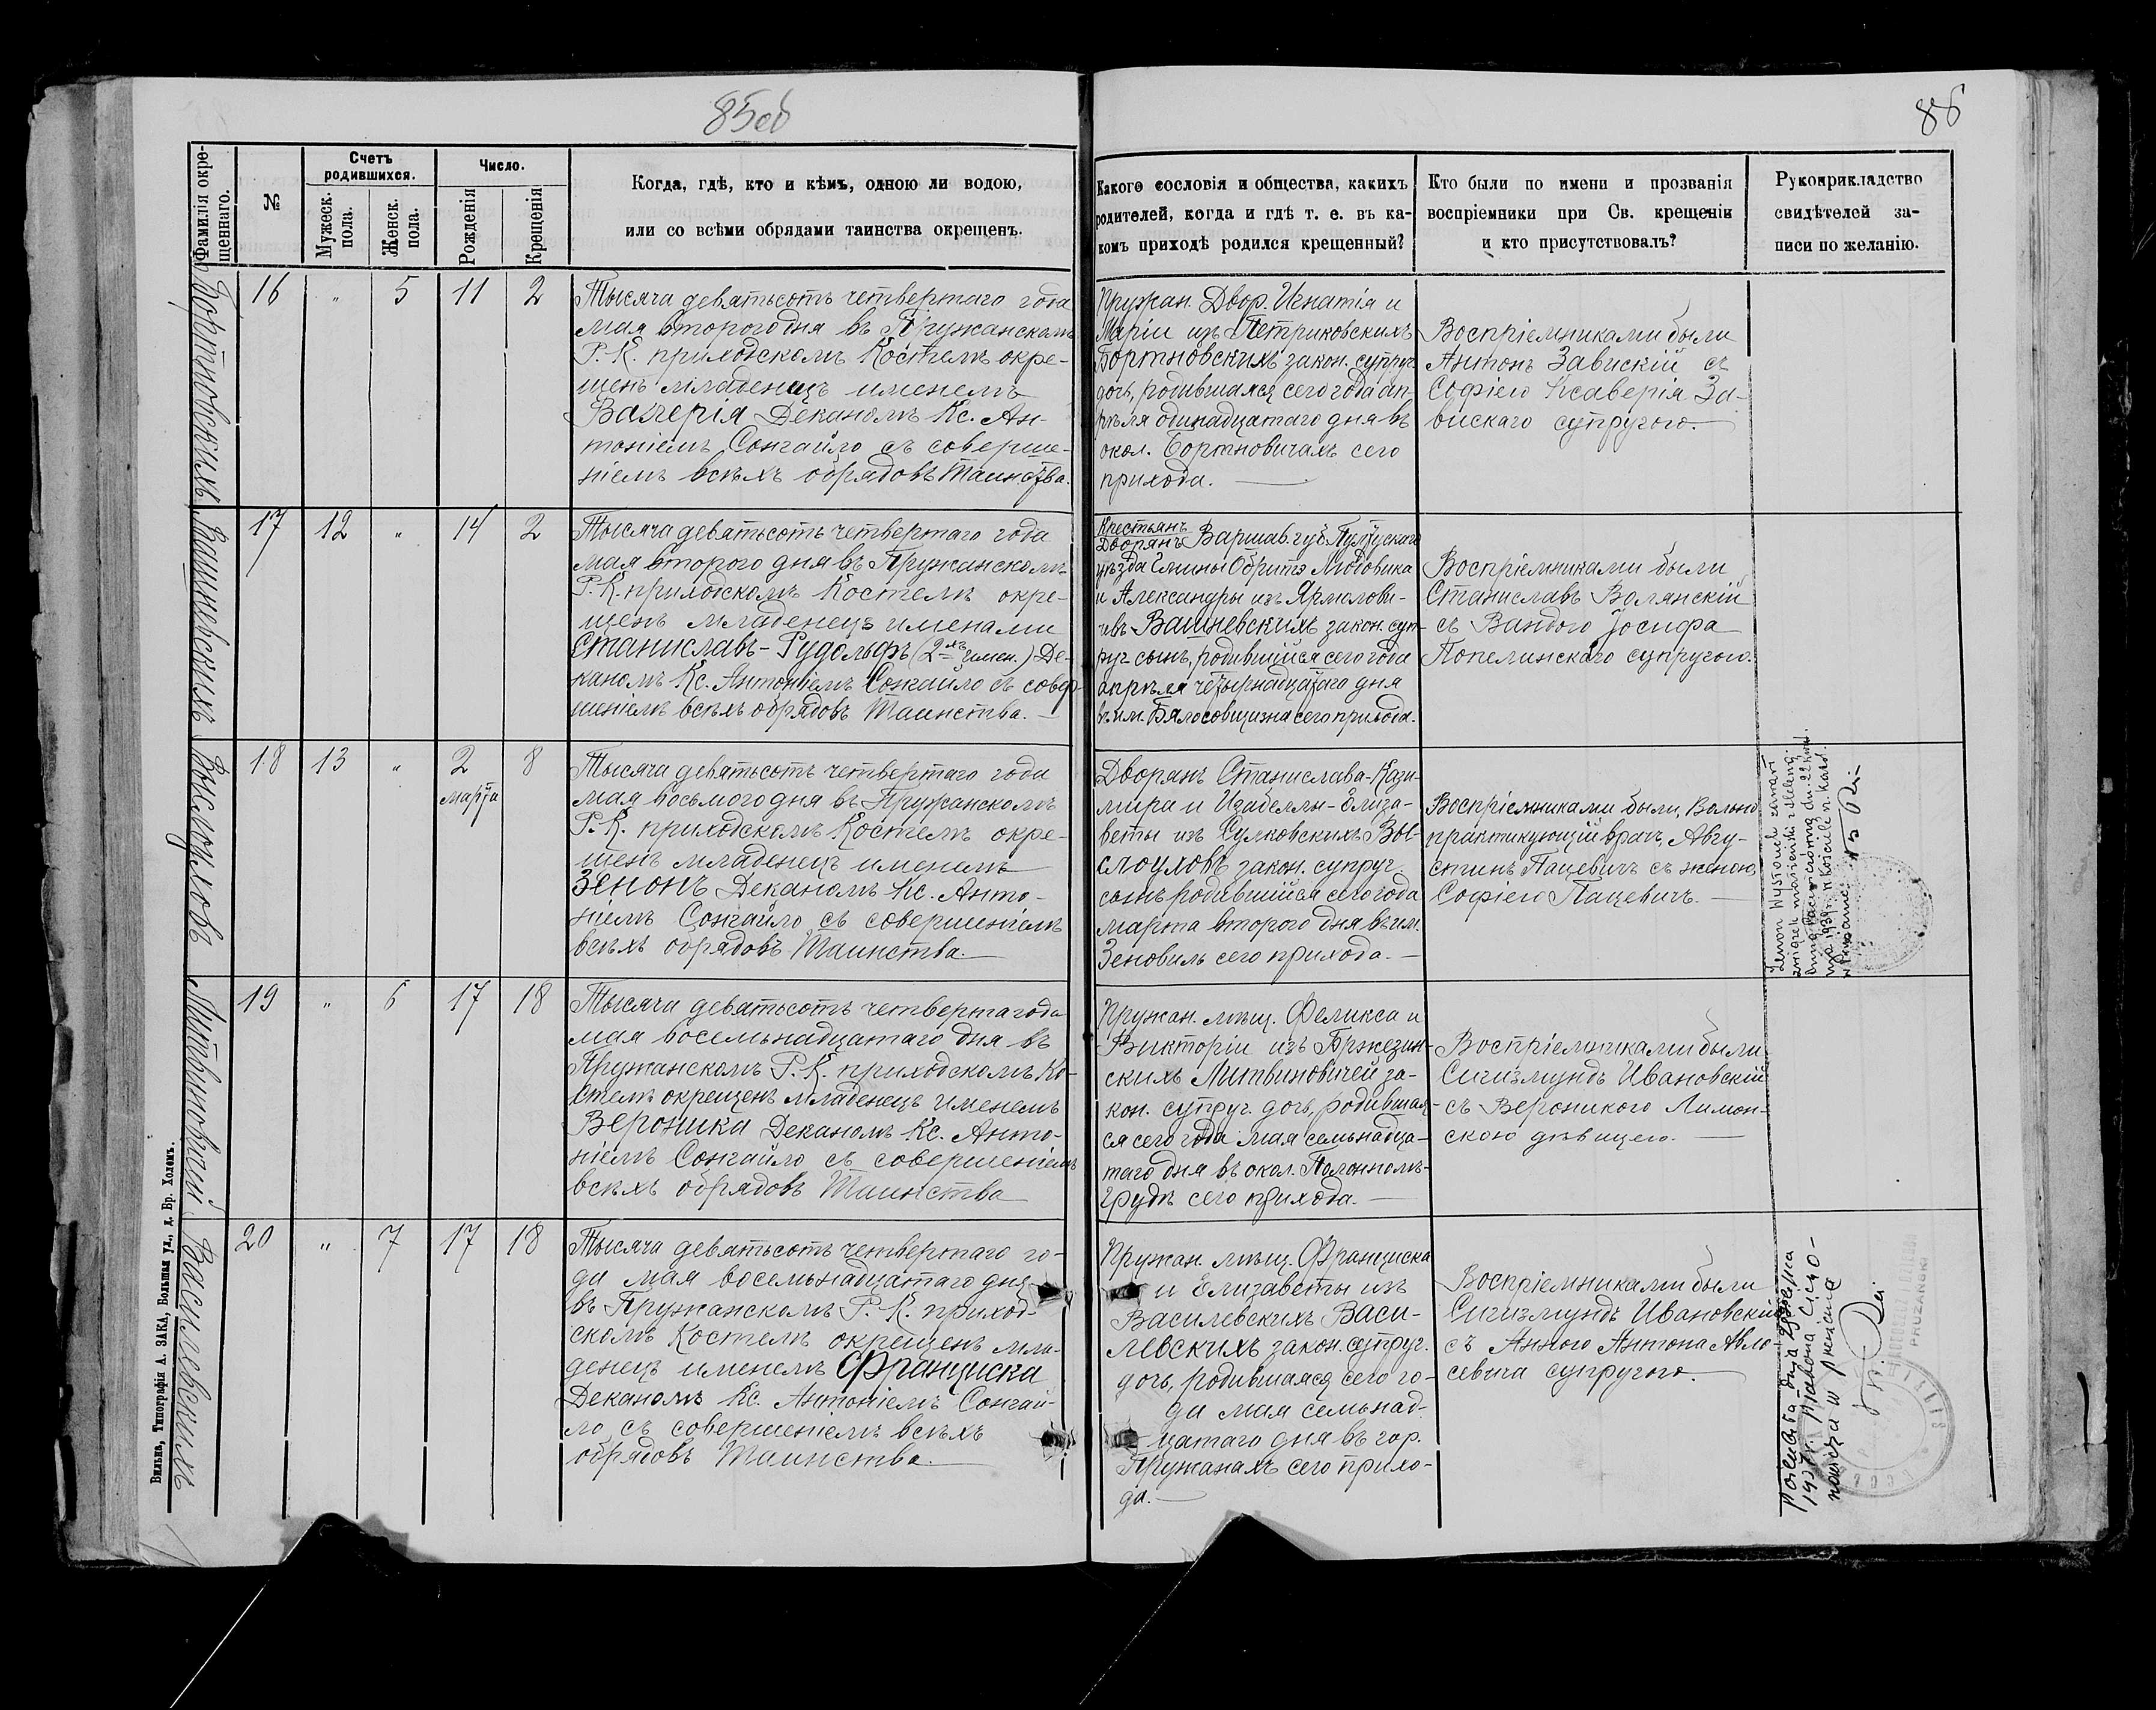 85об
86
Фамилія окре-
щеннаго.
№
Счетъ
родившихся.
Мужеск.
пола.
Женск.
пола.
Число.
Рожденія
Крещенія
Когда, гдѣ, кто и кѣмъ, одною ли водою,
или со всѣми обрядами таинства окрещенъ.
Какого сословія и общества, какихъ
родителей, когда и гдѣ т. е. въ ка-
комъ приходѣ родился крещенный?
Кто были по имени и прозванія
воспріемники при Св. крещеніи
и кто присутствовалъ?
Рукоприкладство
свидѣтелей за-
писи по желанію.
Бортновскихъ
16 " 5 11 2
Тысяча девятьсотъ четвертаго года
мая второго дня въ Пружанскомъ
Р. К. приходскомъ Костелѣ окре-
щенъ младенецъ именемъ
Валерія Деканомъ Кс. Ан-
тоніемъ Сонгайло съ соверше-
ніемъ всѣхъ обрядовъ Таинства.
Пружан. Двор. Игнатія и
Маріи изъ Петриковскихъ
Бортновскихъ закон. супруг.
дочь, родившаяся сего года ап-
рѣля одинадцатаго дня въ
окол. Бортновичахъ сего
прихода.
Воспріемниками были
Антонъ Завискій съ
Софіею Ксаверія За-
вискаго супругою.
Вашневскихъ
17 12 " 14 2
Тысяча девятьсотъ четвертаго года
мая второго дня въ Пружанскомъ
Р. К. приходскомъ Костелѣ окре-
щенъ младенецъ именами
Станиславъ-Рудольфъ (2-хъ имен.) Де-
каномъ Кс. Антоніемъ Сонгайло съ совер-
шеніемъ всѣхъ обрядовъ Таинства.
Крестьянъ
Дворянъ Варшав. губ. Пултускаго
уѣзда Гмины Обрите Людовика
и Александры изъ Ярмолови-
чевъ Вашневскихъ закон. суп-
руг. сынъ, родившійся сего года
апрѣля четырнадцатаго дня
въ им. Бялосовщизна сего прихода.
Воспріемниками были
Станиславъ Волянскій
съ Вандою Іосифа
Попелинскаго супругою.
Выслоуховъ
18 13 " 2 8
марта
Тысяча девятьсотъ четвертаго года
мая восьмого дня въ Пружанскомъ
Р. К. приходскомъ Костелѣ окре-
щенъ младенецъ именемъ
Зенонъ Деканомъ Кс. Анто-
ніемъ Сонгайло съ совершеніемъ
всѣхъ обрядовъ Таинства.
Дворянъ Станислава-Кази-
мира и Изабеллы-Елиза-
веты изъ Сулковскихъ Вы-
слоуховъ закон. супруг.
сынъ родившійся сего года
марта второго дня въ им.
Зеновиль сего прихода.
Воспріемниками были, Вольно
практикующій врачъ, Авгу-
стинъ Пацевичъ съ женою
Софіею Пацевичъ.
Zenon Wysłouch zawarł
związek małżeński z Heleną
dn. 22
1939 r. w kościele
Литвиновичей
19 " 6 17 18
Тысяча девятьсотъ четвертаго года
мая восемьнадцатаго дня въ
Пружанскомъ Р. К. приходскомъ Ко-
стелѣ окрещенъ младенецъ именемъ
Вероника Деканомъ Кс. Анто-
ніемъ Сонгайло съ совершеніемъ
всѣхъ обрядовъ Таинства
Пружан. мѣщ. Феликса и
Викторіи изъ Бржезин-
скихъ Литвиновичей за-
кон. супруг. дочь, родившая-
ся сего года мая семьнадца-
таго дня въ окол. Полонномъ-
Грудѣ сего прихода.
Воспріемниками были
Сигизмундъ Ивановскій
съ Вероникою Лимон-
скою дѣвицею.
Василевскихъ
20 " 7 17 18
Тысяча девятьсотъ четвертаго го-
да мая восемьнадцатаго дня
въ Пружанскомъ Р. К. приход-
скомъ Костелѣ окрещенъ мла-
денецъ именемъ Франциска
Деканомъ Кс. Антоніемъ Сонгай-
ло съ совершеніемъ всѣхъ
обрядовъ Таинства.
Пружан. мѣщ. Франциска
и Елизаветы изъ
Василевскихъ Васи-
левскихъ закон. супруг.
дочь, родившаяся сего го-
да мая семьнад-
цатаго дня въ гор.
Пружанахъ сего прихо-
да.
Воспріемниками были
Сигизмундъ Ивановскій
съ Анною Антона Авло-
севича супругою.
Poślubiła dnia
PRUŻAŃSKI
Вильна, Типографія А. ЗАКА, Большая ул., д. Бр. Холемъ.